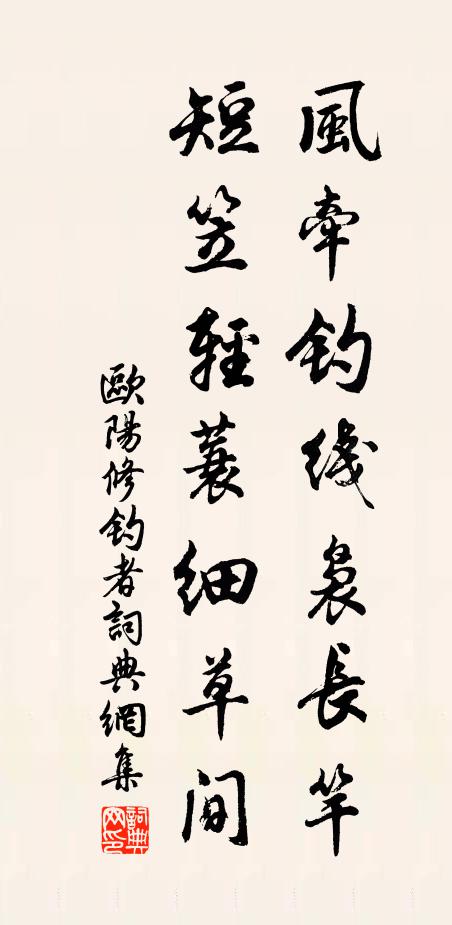 風牽钓线裊長竿
短笠輕蓑细草间
歐陽修钓者詞典網集
詞典网印